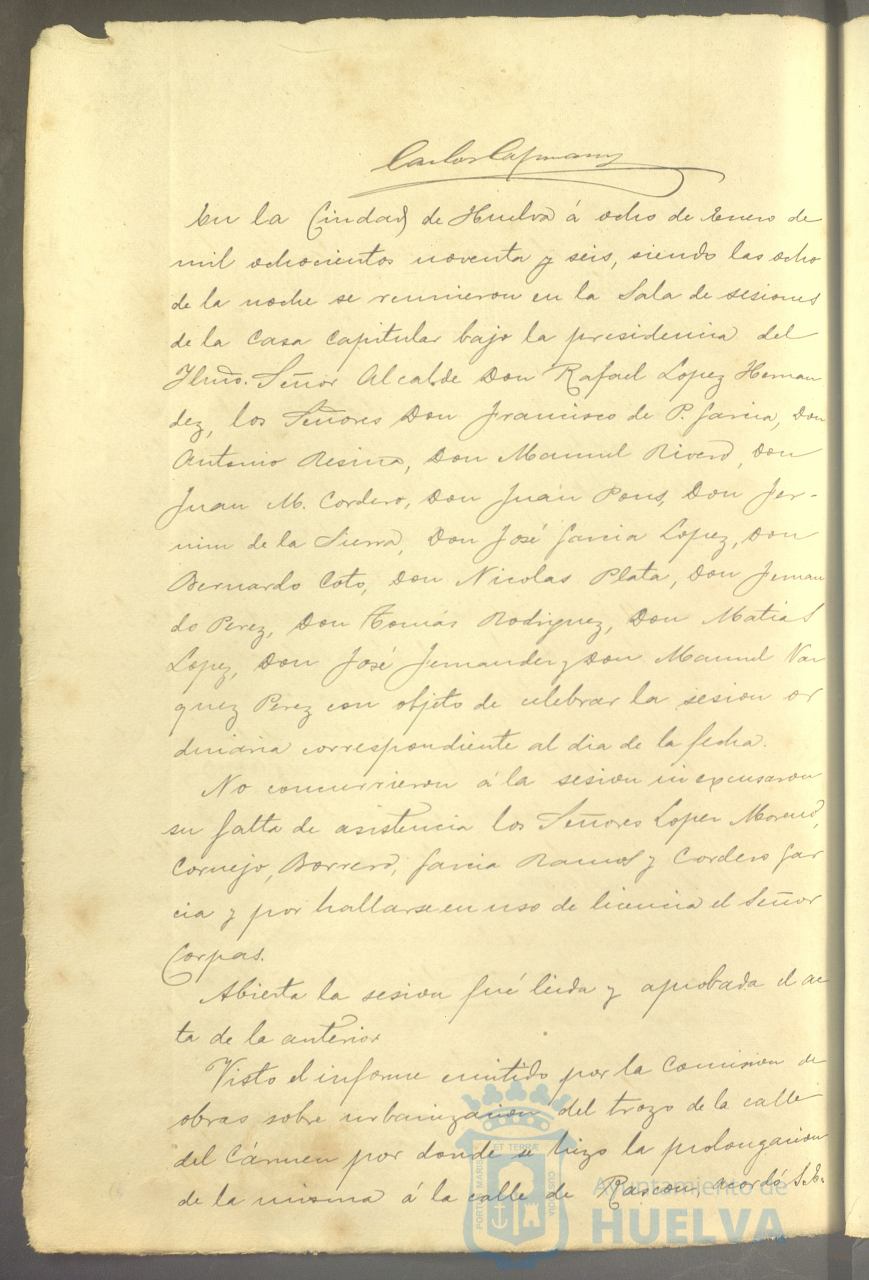 Carlos Capmany
En la Ciudad de Huelva á ocho de Enero de
mil ochocientos noventa y seis, siendo las ocho
de la noche se reunieron en la Sala de sesiones
de la Casa Capitular bajo la presidencia del
Ilmo. Señor Alcalde Don Rafael Lopez Hernan
dez, los Señores Don Francisco de P. Garcia, Don
Antonio Resina, Don Manuel Rivero, Don
Juan M. Cordero, Don Juan Pons, Don Fer-
min de la Sierra, Don José Garcia Lopez, Don
Bernardo Coto, Don Nicolas Plata, Don Fernan
do Perez, Don Tomás Rodriguez, Don Matias
Lopez, Don José Fernandez y Don Manuel Vaz
quez Perez con objeto de celebrar la sesion or
dinaria correspondiente al dia de la fecha.
No concurrieron á la sesion ni excusaron
su falta de asistencia los Señores Lopez Moreno,
Cornejo, Borrero, Garcia Ramos y Cordero Gar
cia y por hallarse en uso de licencia el Señor
Corpas.
Abierta la sesion fué leida y aprobada el ac
ta de la anterior
Visto el informe emitido por la Comision de
obras sobre urbanizacion del trozo de la calle
del Cármen por donde se hizo la prolongacion
de la misma á la calle de Rascon, acordó S.E.
PORTUS MARIS ET TERRÆ CUSTODIA
Ayuntamiento de
HUELVA